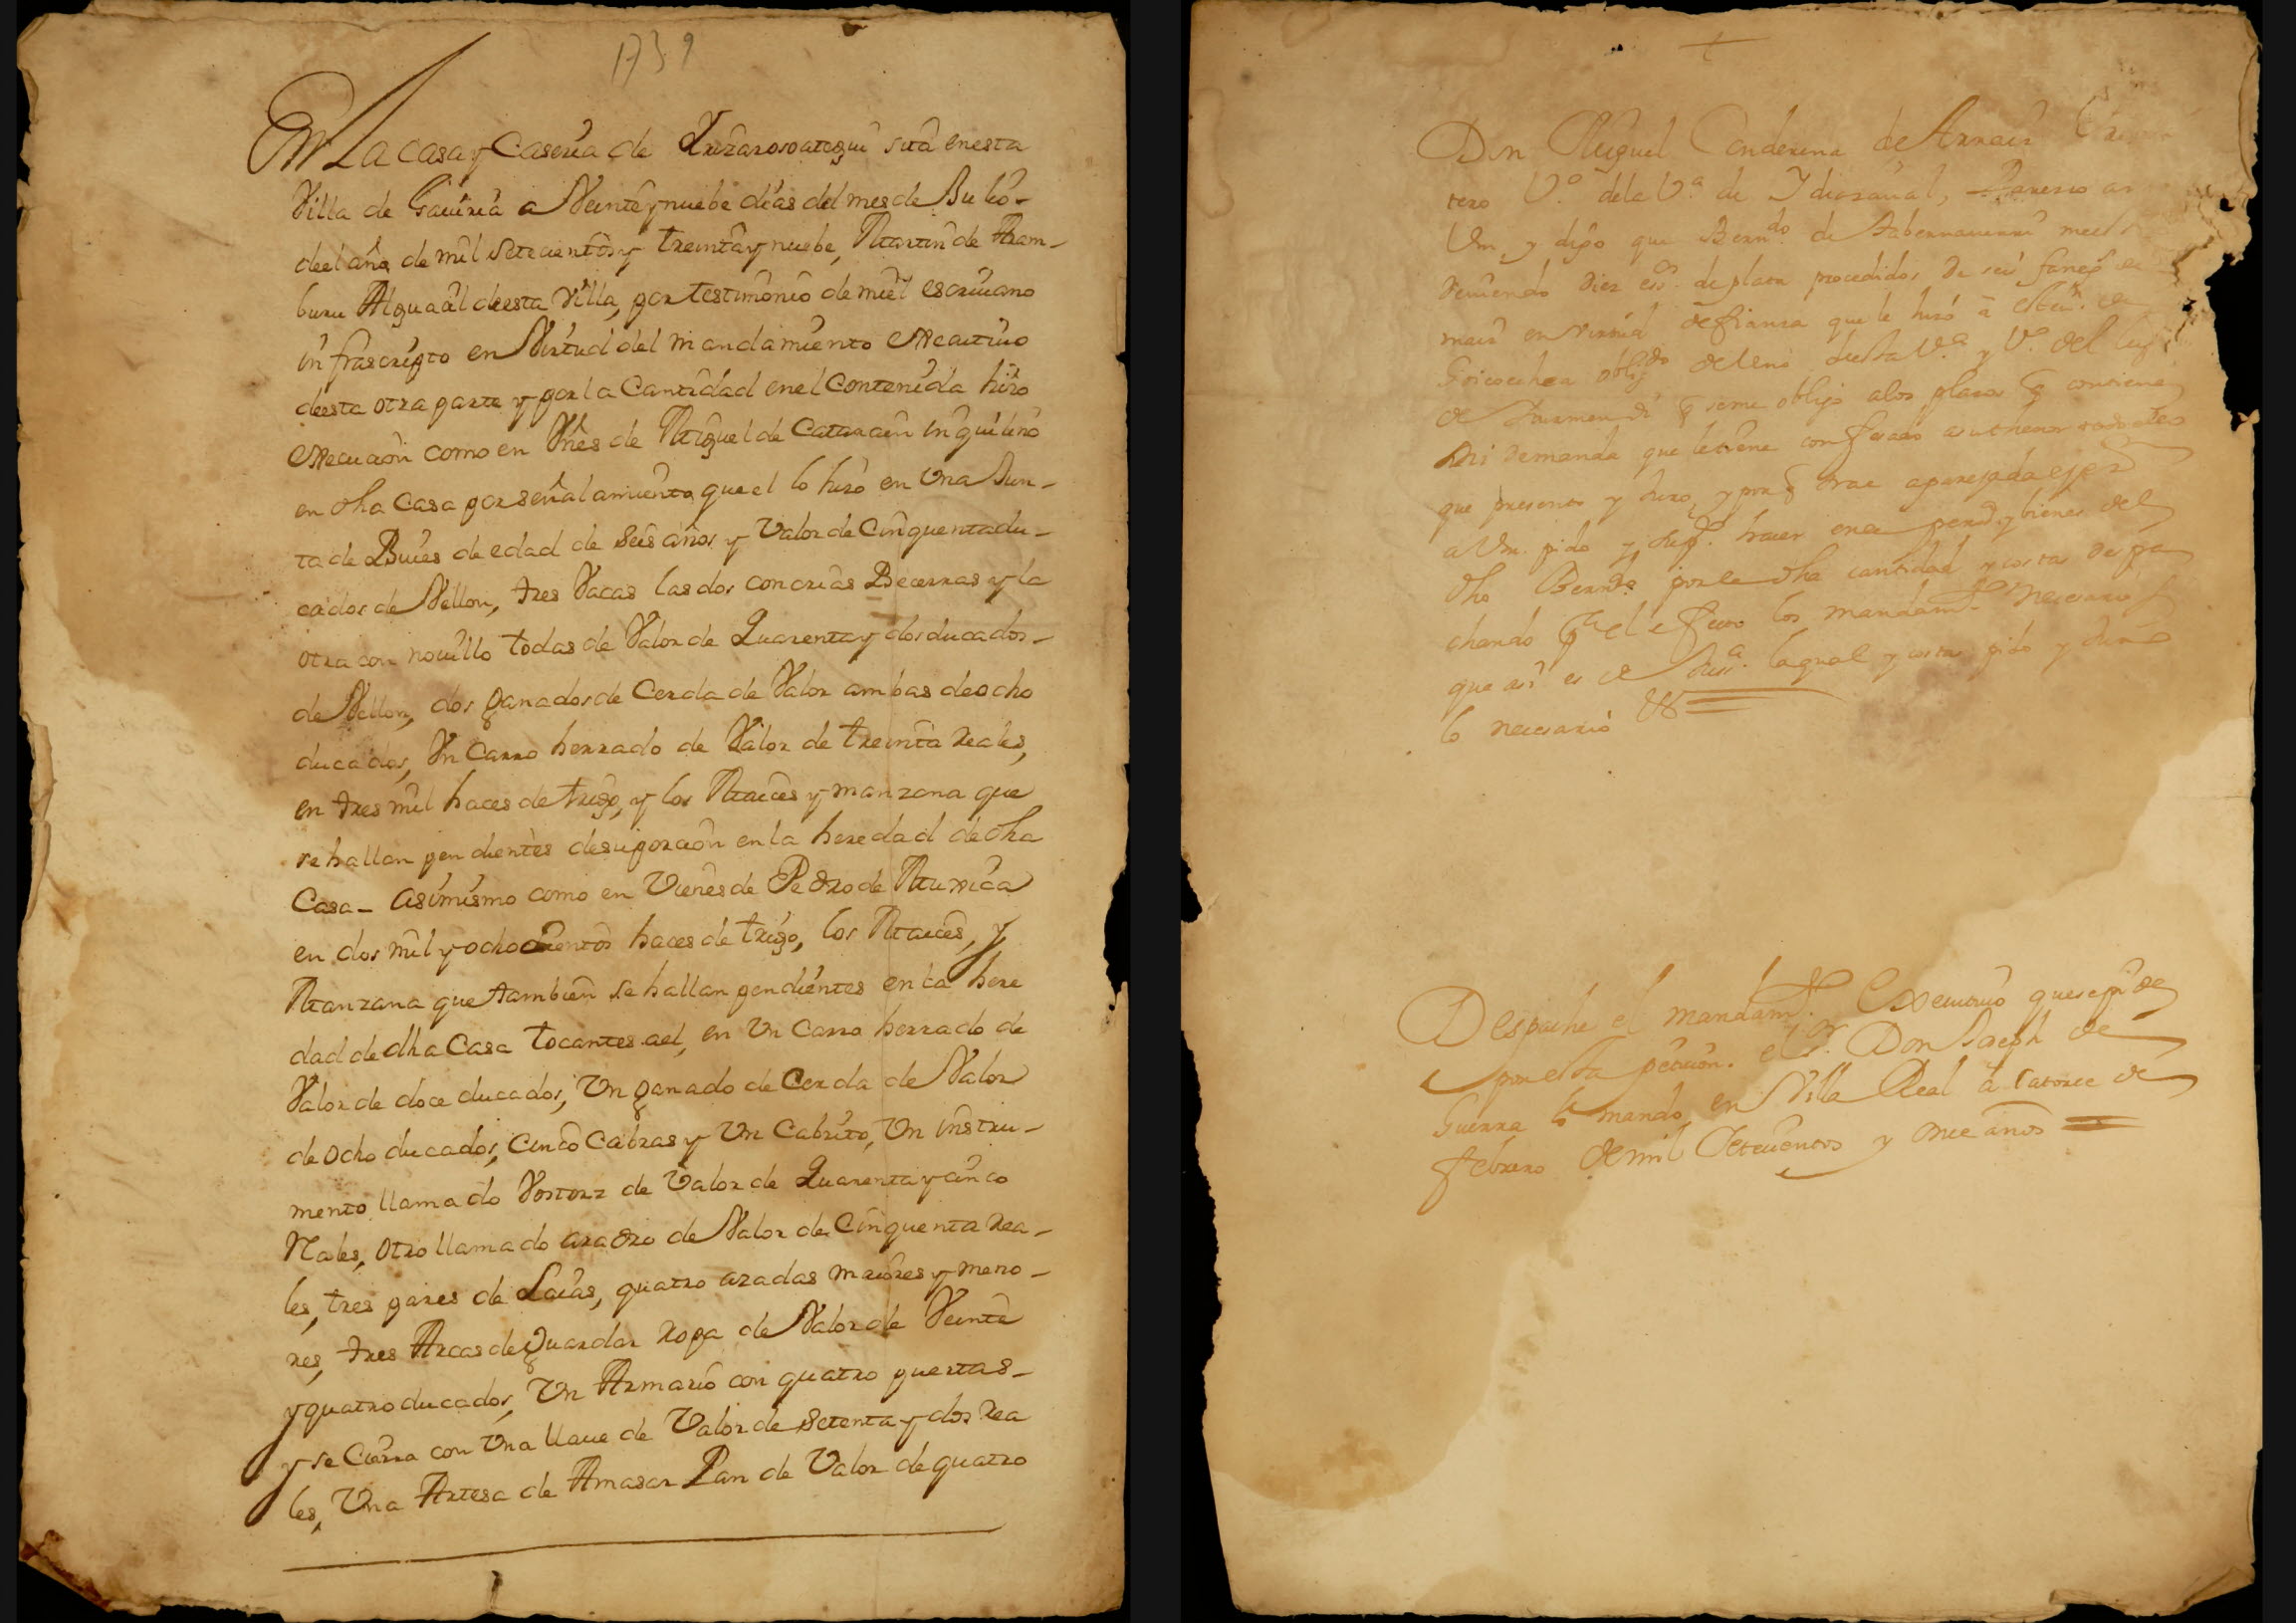 1739
En La casa y Caseria de sita enesta
Villa de Gaviria a Veinte y nuebe dias del mes de Julio-
deel año de mil Setecientos y treinta y nuebe, Martin de Aram-
buru Alguacil deesta Villa, por testimonio de mi el escriuano
infrascripto en Virtud del mandamiento executiuo
deesta otra parte y por la Cantidad enel Contenida hizo
execucion como en Vnes de Miguel de inquilino
en dha Casa por señalamiento que el lo hizo en Vna Jun-
ta de Bueies de edad de Seis años y Valor de Cinquenta du-
cados de Vellon, tres Vacas las dos con crias Becerras y la
otra con nouillo todas de Valor de Quarenta y dos ducados-
de Vellon, dos ganados de Cerda de Valor ambas de ocho
ducados, Vn Carro herrado de Valor de treinta reales,
en tres mil haces de trigo, y los Maices y manzana que
se hallan pendientes desuporcion en la heredad de dha
Casa- asimismo como en Vienes de Pedro de Muxica
en dos mil y ochocientos haces de trigo, los Maices, y
Manzana que tambien se hallan pendientes en la here
dad de dha Casa tocantes ael, en Vn Carro herrado de
Valor de doce ducados, Vn ganado de Cerda de Valor
de ocho ducados, Cinco Cabras y Vn Cabrito, Vn instru-
mento llamado de Valor de Quarenta y cinco
Rales, Otro llamado aradro de Valor de Cinquenta rea-
les, tres pares de Laias, quatro azadas maiores y meno-
res, tres Arcas de Guardar ropa de Valor de Veinte
y quatro ducados, Vn Armario con quatro puertas-
y se Cierra con Vna llaue de Valor de setenta y dos rea
les, Vna Artesa de Amasar Pan de Valor de quatro
Don Miguel de Arraiz
Vº dela Vª de Ydiazaual, Parezco
Vm. y digo que Berndo. de
deuiendo diez essº. de plata procedidos de seis faneg
maiz en virtud defianza que le hizo a
Goicoechea de
de que seme obligo alos plazos q contiene
mi demanda que letiene confesado
que presento y Juro, y por q trae aparejada
a Vm. pido y Supº. hacer en la persª y bienes del
dho Berndo. por la dha cantidad y costas despa
chando pª el efecto los mandamtº. necesarios
que asi es de Justª. laqual y costas pido y Juro
lo necesario &
Despache el mandamtº. Executiuo quesepide
por esta peticion. el Sr. Don Joseph de
Guerra lo mando en Villa Real à Catorce de
febrero de mil Setecientos y once años